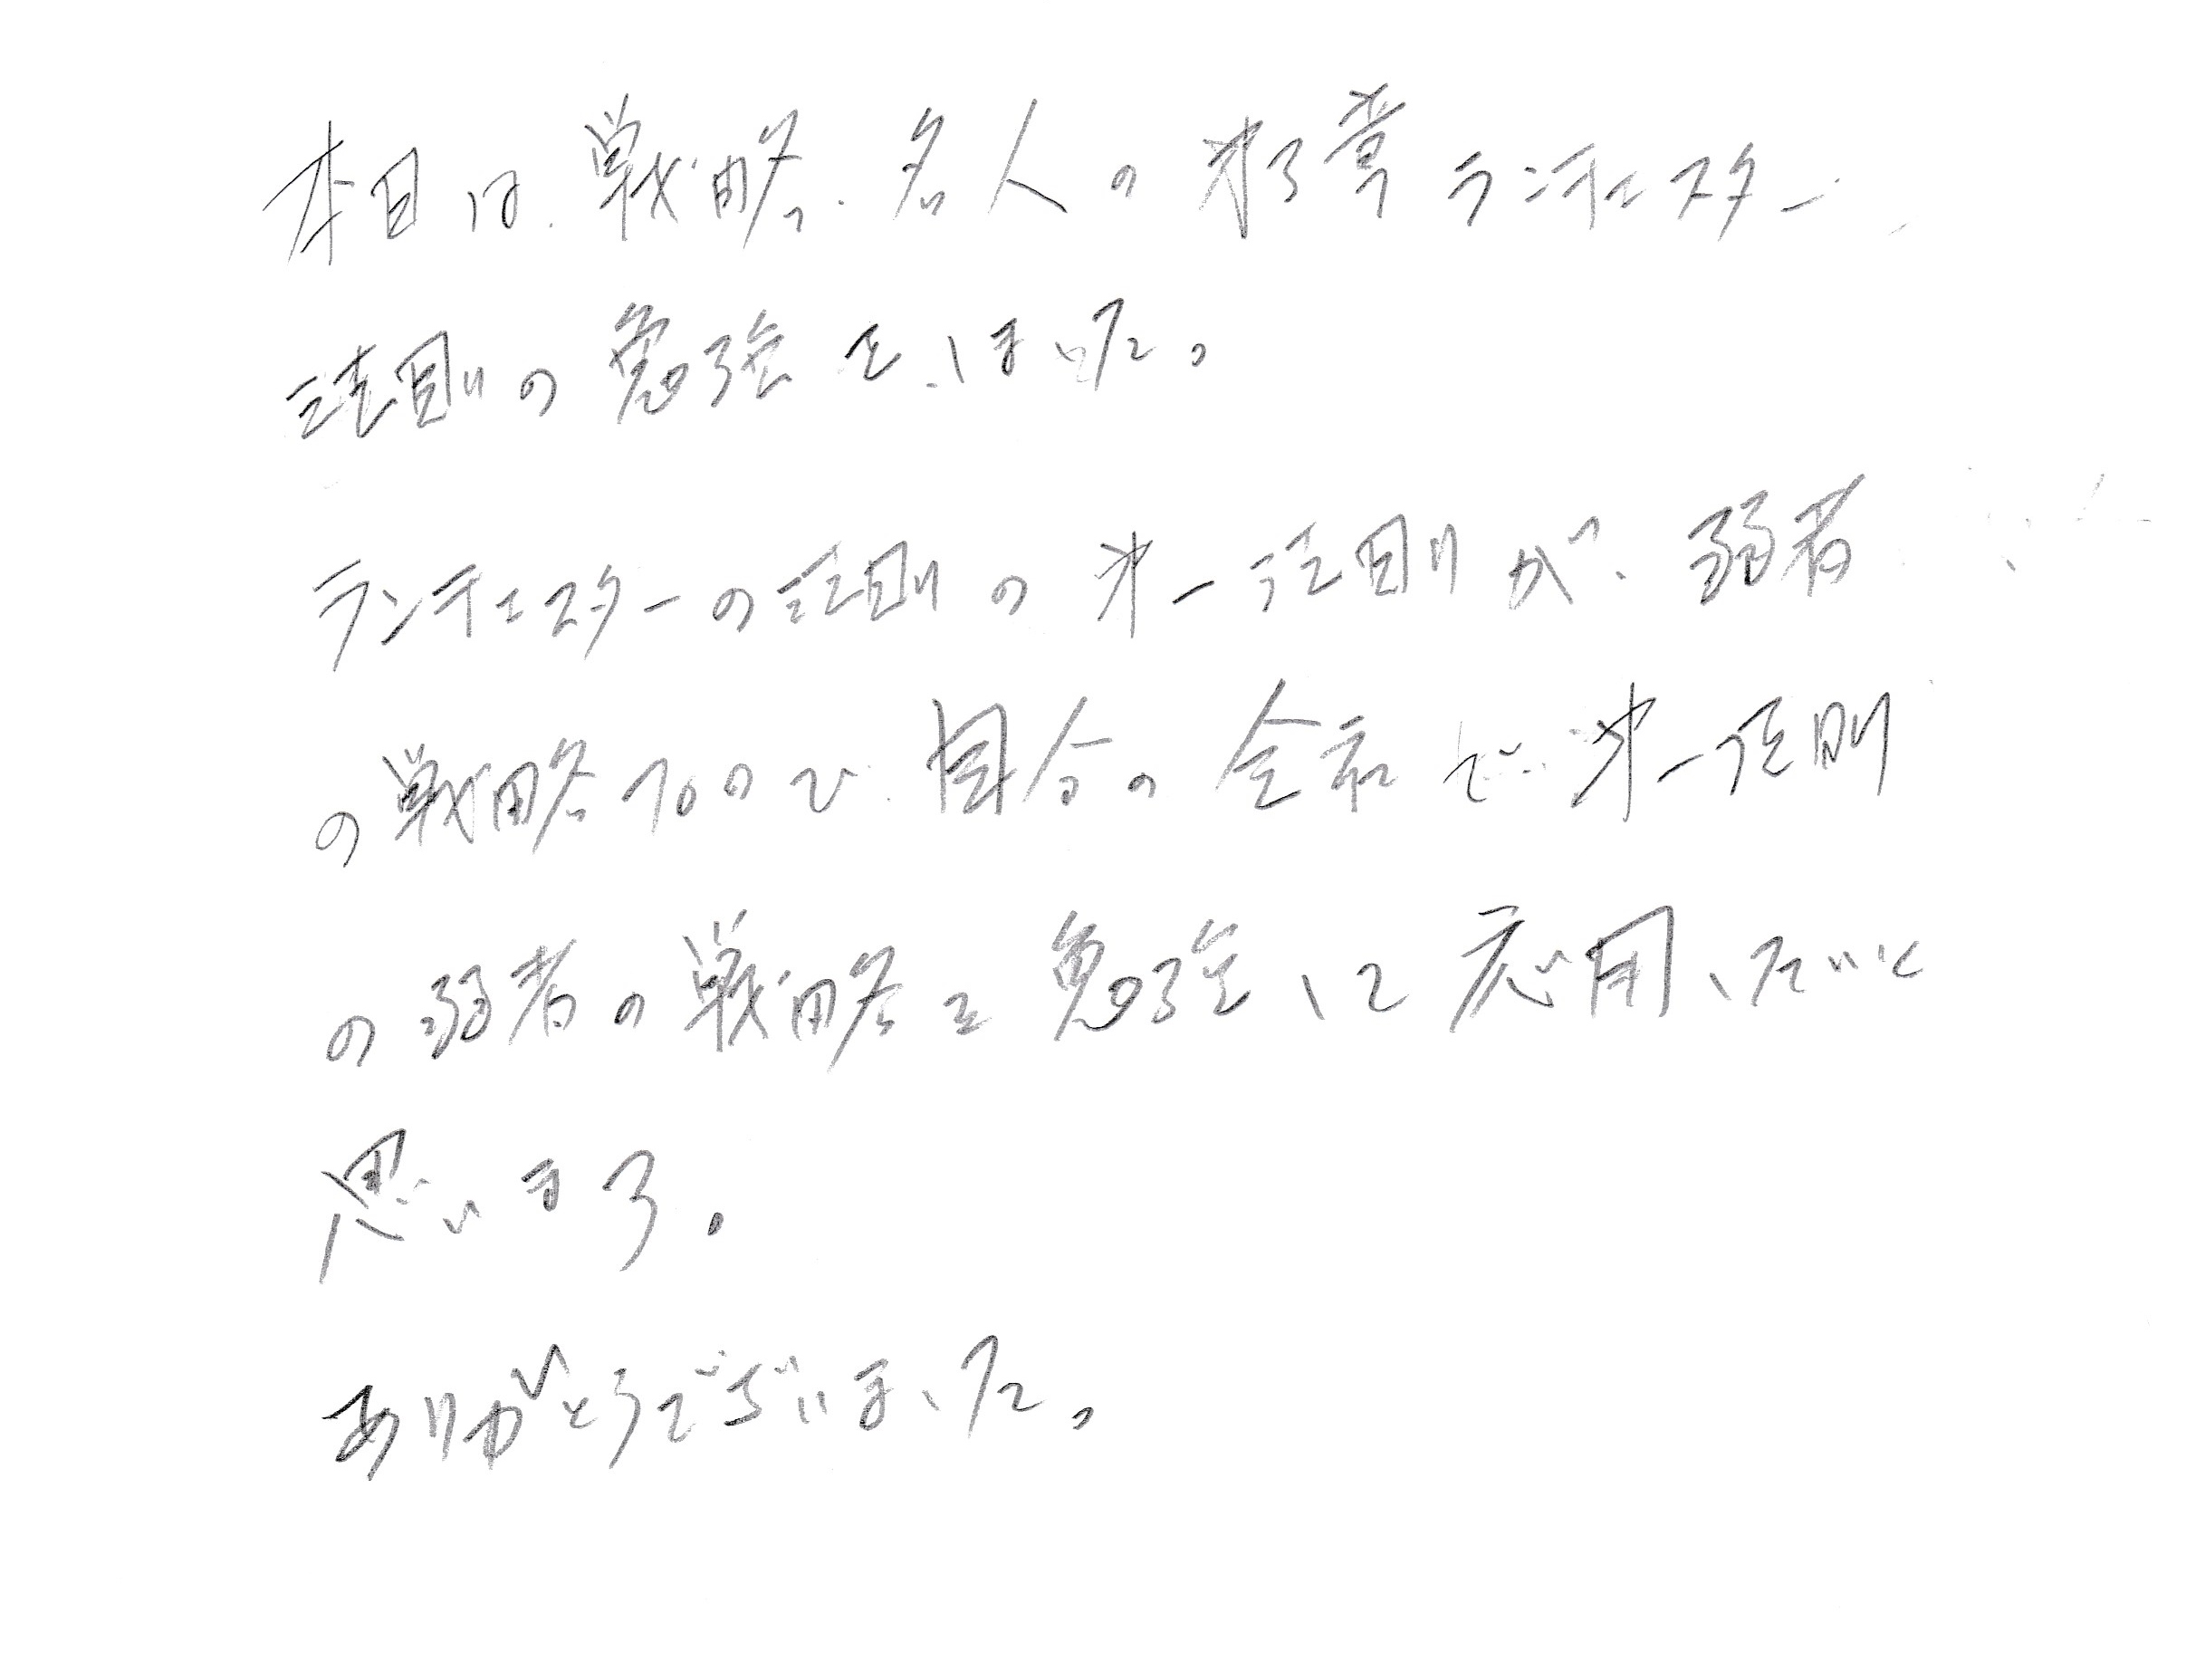 本日は、戦略名人の第3章ランチェスター
法則の勉強をしました。
ランチェスターの法則の第一法則が、弱者
の戦略なので、自分の会社で第一法則
の弱者の戦略を勉強に応用したいと
思います。
ありがとうございました。